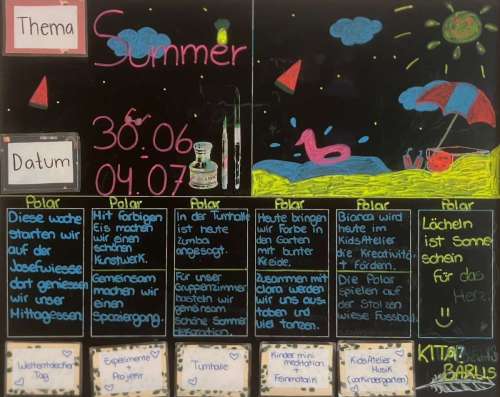 Thema
Summer
Datum
30.06
-
04.07
Polar
Diese woche
starten wir
auf der
Josefwiesse
dort geniessen
wir unser
Mittagessen.
Polar
Mit farbigen
Eis machen
wir einen
schönen
Kunstwerk.
Gemeinsam
machen wir
einen
Spaziergang.
Polar
In der Turnhalle
ist heute
Zumba
angesagt.
Für unser
Gruppenzimmer
basteln wir
gemeinsam
schöne Sommer
dekoration.
Polar
Heute bringen
wir Farbe in
den Garten
mit bunter
Kreide.
Zusammen mit
clara werden
wir uns aus-
toben und
viel tanzen.
Polar
Bianca wird
heute im
KidsAtelier
die Kreativität
fördern.
Die Polar
spielen auf
der Stolzen
wiese Fussball.
Polar
Lächeln
ist Sonne
schein
Für das
Herz.
Weltentdecker
Tag
Experimente
+
Projekt
Turnhalle
Kinder mini
meditation
+
Feinmotorik
KidsAtelier +
Musik
(Vorkindergarten)
KITA
BARLIS